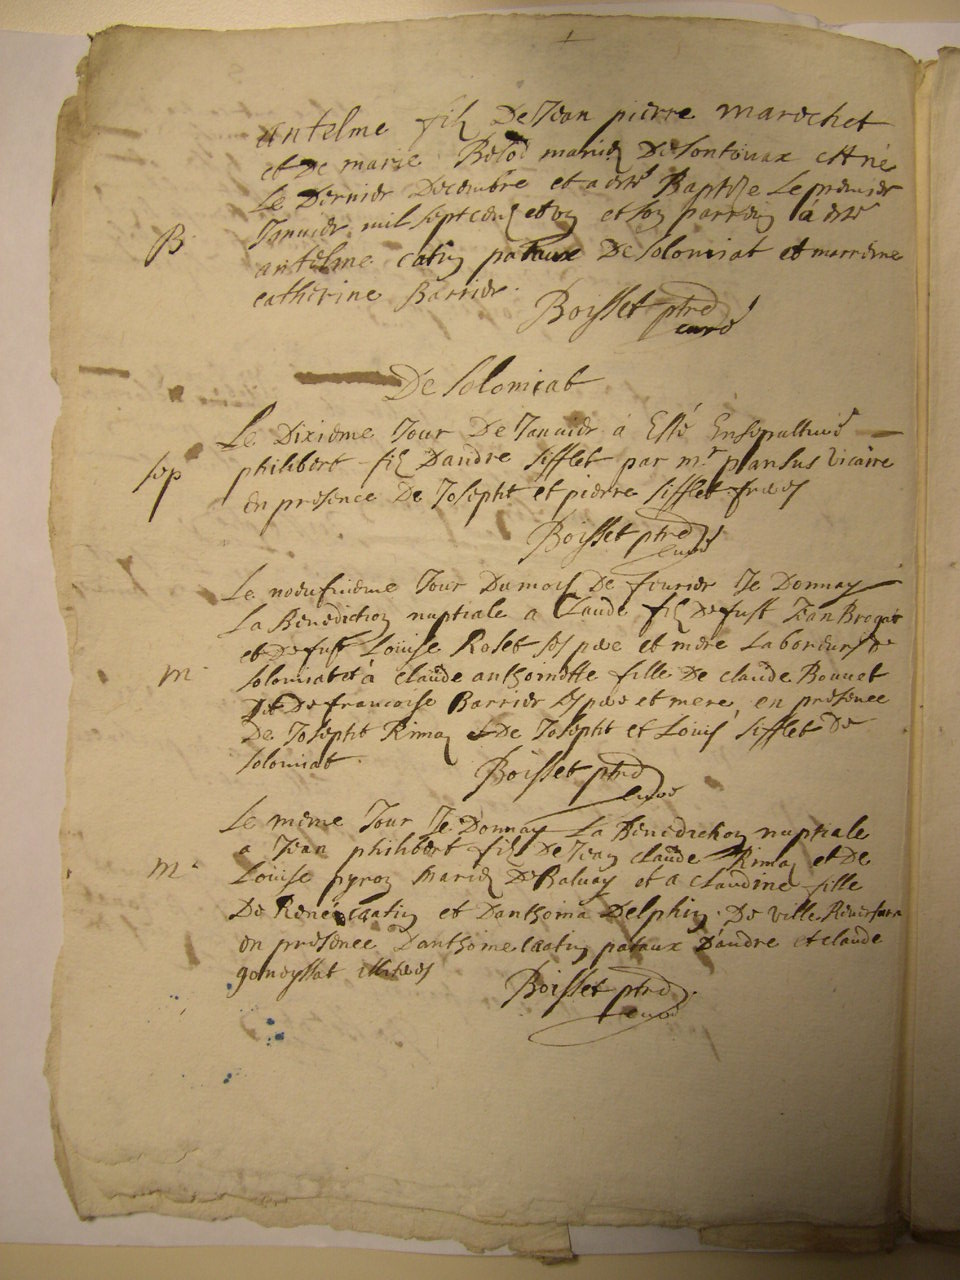 antelme fils De Jean pierre marechet
et De marie Belod mariez De Lontouax est né
Le Dernier Decembre et a esté Baptize Le premier
Janvier mil sept cens et un et son parrein à esté
B
antelme catin pataux De Solomiat et marreine
catherine Barrier.
Boisset ptre
curé
De Solomiat
Le Dixieme Jour De Janvier à Esté Ensepulturé
sep
philibert fils Dandre sifflet par mr pansus vicaire
en presence De Joseph et pierre sifflet freres
Boisset ptre
curé
Le neufvieme Jour Du mois De fevrier Je Donnay
La Benediction nuptiale a Claude fils De fust Jean Brogat
et De fust Louise Roset ses pere et mere Laboreurs De
m
Solomiat et à claude anthoinette fille De claude Bouvet
et De francoise Barrier ses pere et mere, en presence
De Joseph Rima et De Joseph et Louis sifflet De
Solomiat
Boisset ptre
curé
Le meme Jour Je Donnay La Benediction nuptiale
a Jean philibert fils De Jean claude Rima et De
m
Louise pyron mariez De Balvay et a claudine fille
De René catin et Danthoina Delphin. De ville Reversura
en presence Danthoine catin pataux D'andre et claude
gonoyssat
Boisset ptre
curé